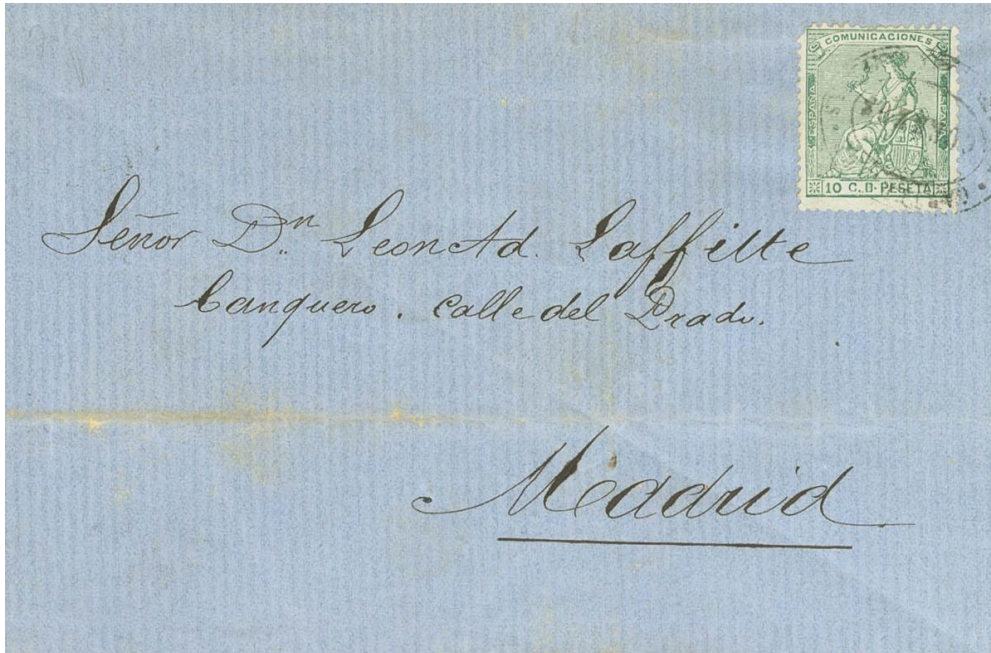 COMUNICACIONES
ESPAÑA
ESPAÑA
10 C. D. PESETA
Señor Dn Leon Ad. Laffitte
banquero. calle del Prado.
Madrid